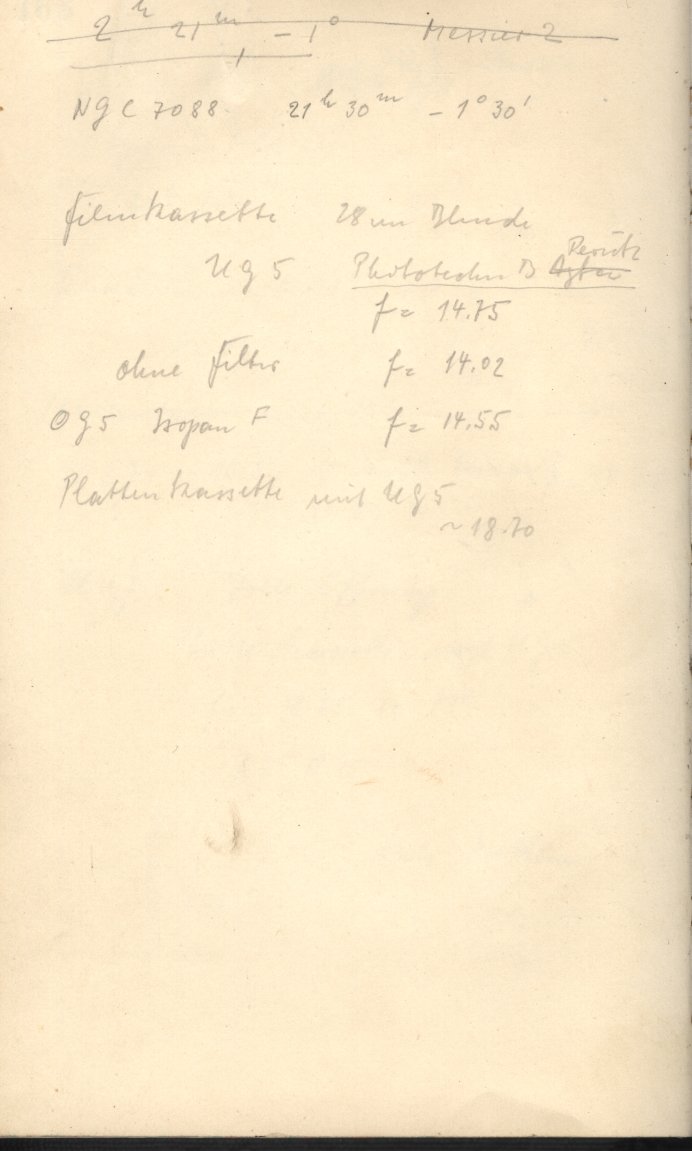 2 h 21 m – 1° Messier 2
NGC 7088 21 h 30 m – 1° 30'
Filmkassette 28 mm Blende
Perutz
UG 5 Phototechn B Agfa
f = 14.75
ohne Filter f = 14.02
OG5 Isopan F f = 14.55
Plattenkassette mit UG 5
~ 18.70